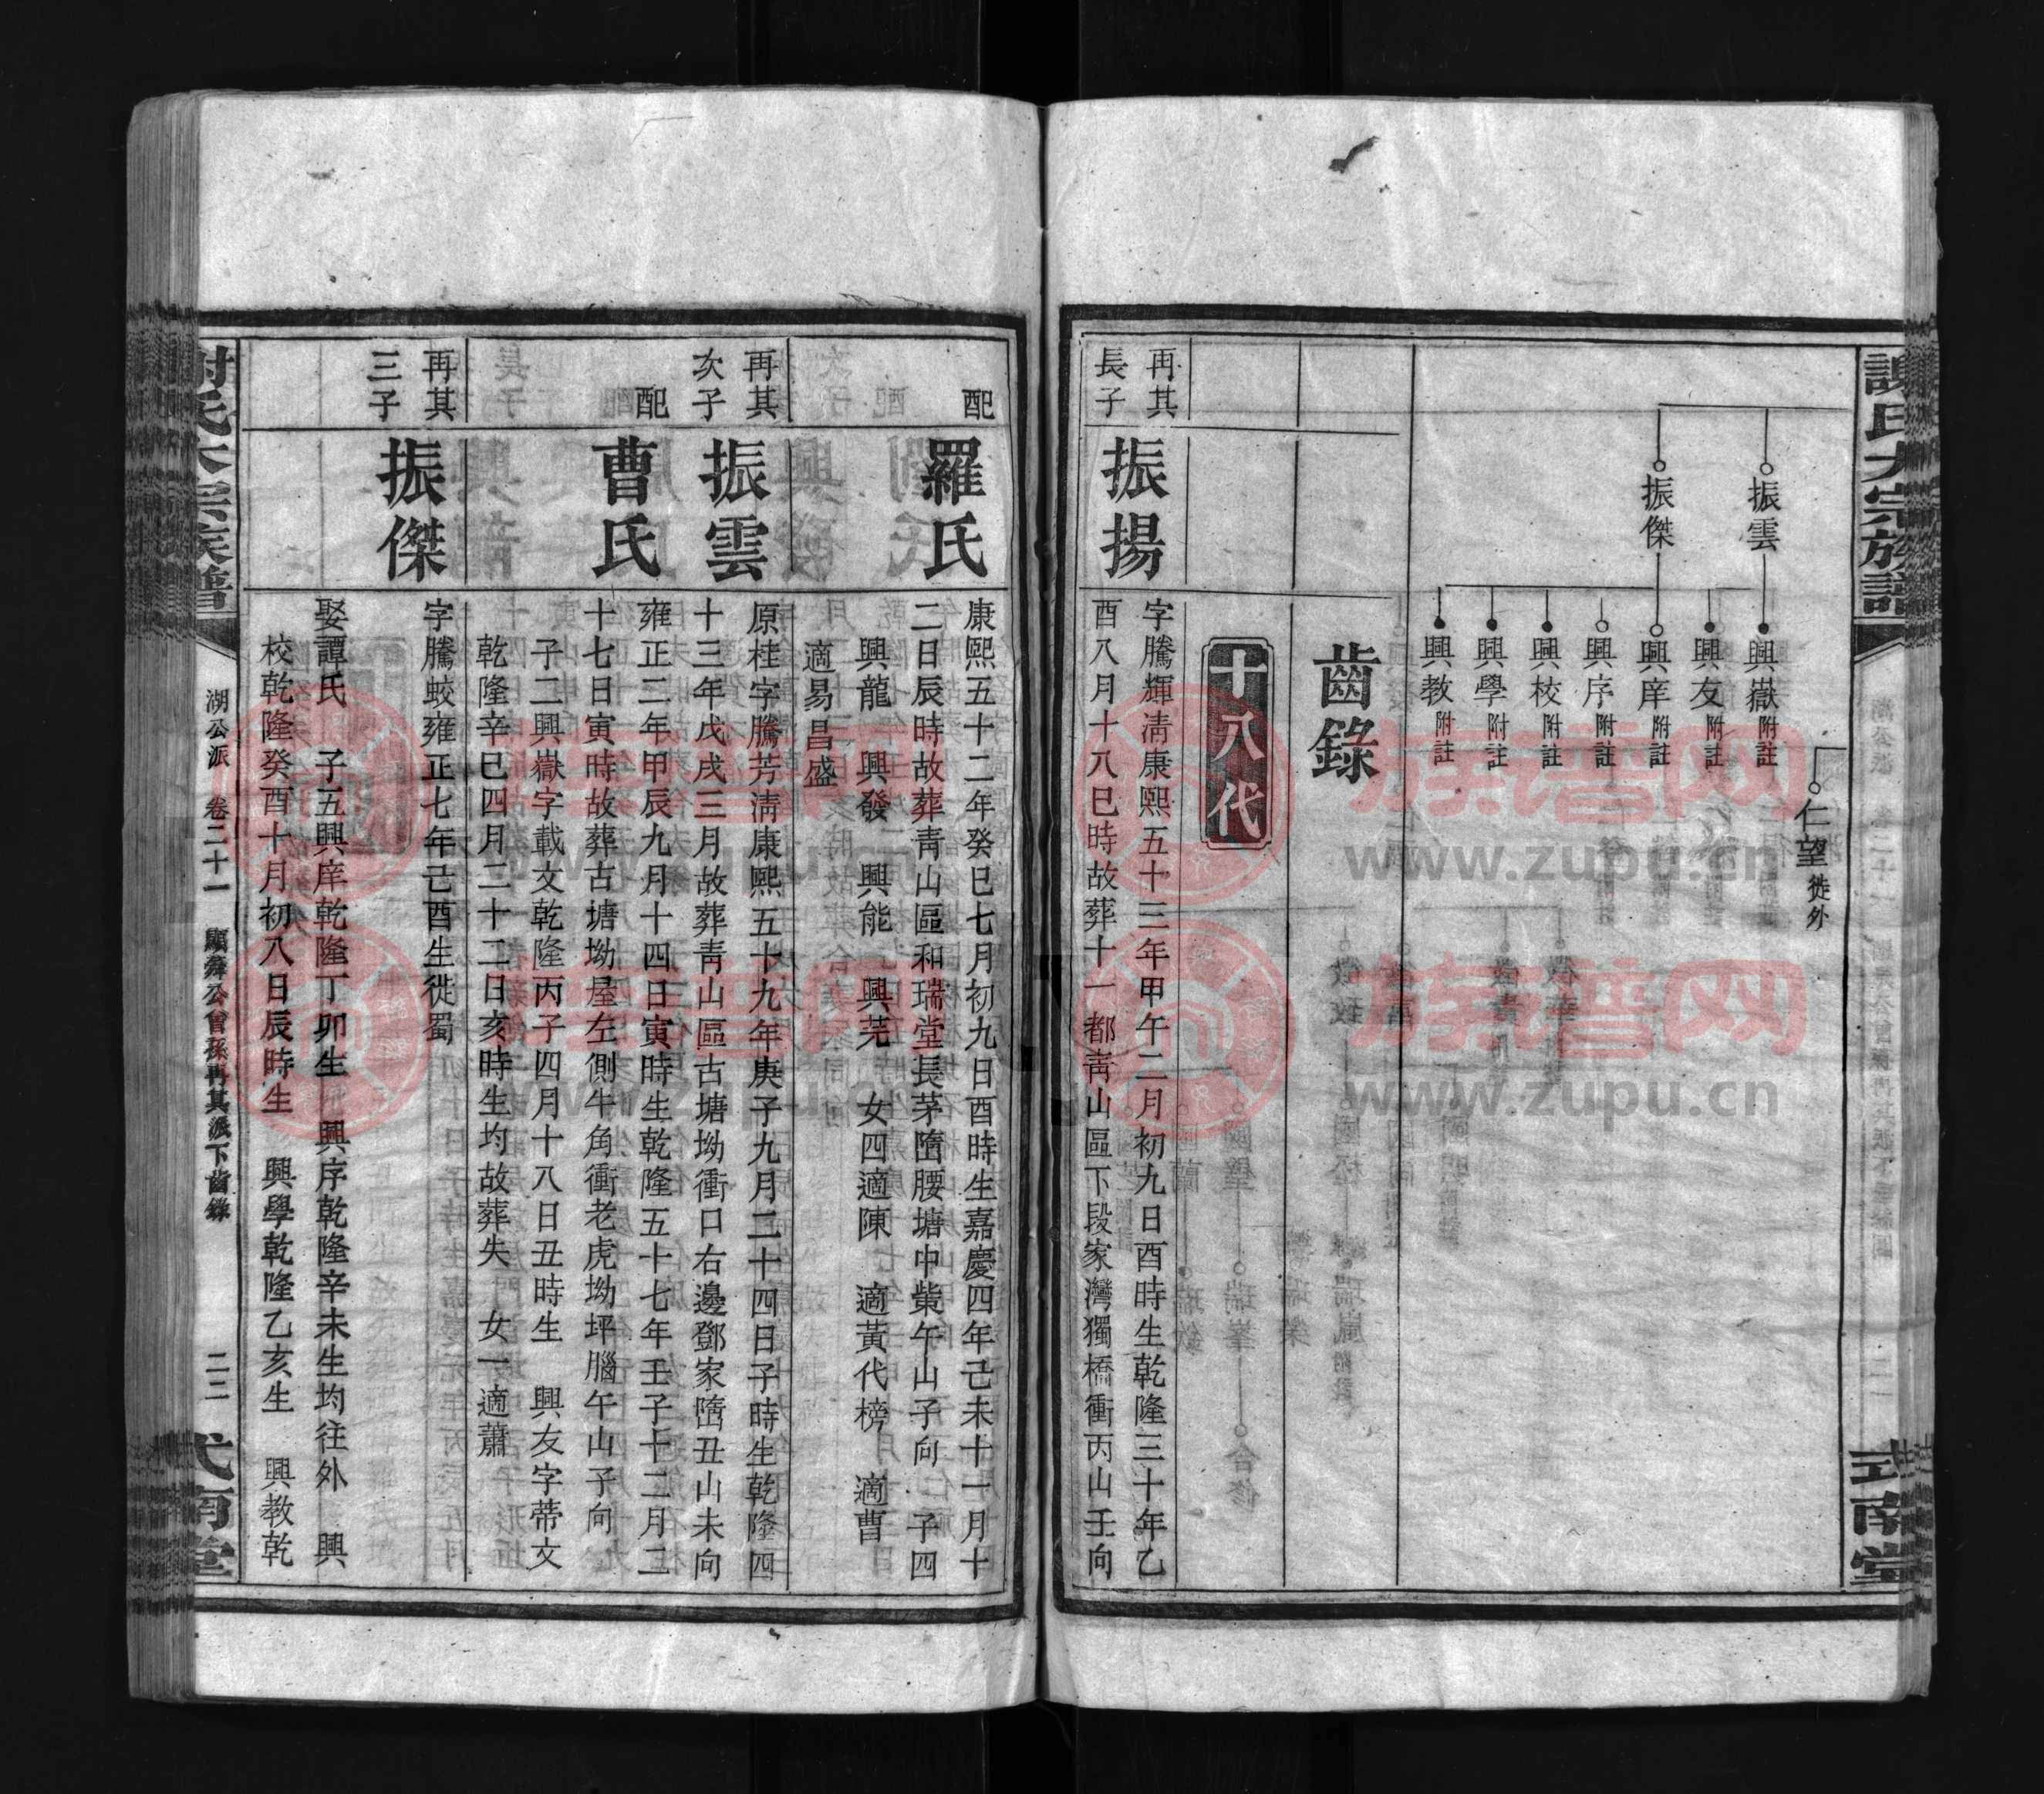 謝氏大宗族譜
式南堂
仁望 徙外
振雲
振傑
興嶽 附註
興友 附註
興庠 附註
興序 附註
興校 附註
興學 附註
興教 附註
齒錄
十八代
再其
長子
振揚
字騰輝淸康熙五十三年甲午二月初九日酉時生乾隆三十年乙
酉八月十八巳時故葬十一都靑山區下段家灣獨橋衝丙山壬向
配
羅氏
康熙五十二年癸巳七月初九日酉時生嘉慶四年己未十一月十
二日辰時故葬靑山區和瑞堂長茅隋腰塘中柴午山子向 子四
興龍 興發 興能 興芫 女四適陳 適黃代榜 適曹
適易昌盛
再其
次子
振雲
原桂字騰芳淸康熙五十九年庚子九月二十四日子時生乾隆四
十三年戊戌三月故葬靑山區古塘坳衝口右邊鄧家隋丑山未向
配
曹氏
雍正二年甲辰九月十四日寅時生乾隆五十七年壬子十二月二
十七日寅時故葬古塘坳屋左側牛角衝老虎坳坪腦午山子向
子二興嶽字載文乾隆丙子四月十八日丑時生 興友字蒂文
乾隆辛巳四月二十二日亥時生均故葬失 女一適蕭
再其
三子
振傑
字騰蛟雍正七年己酉生徙蜀
娶譚氏 子五興庠乾隆丁卯生 興序乾隆辛未生均往外 興
校乾隆癸酉十月初八日辰時生 興學乾隆乙亥生 興教乾
謝氏大宗族譜
湖公派 卷二十一 顯舜公曾孫再其派下齒錄
二三
式南堂
族谱网
www.zupu.cn
族谱网
www.zupu.cn